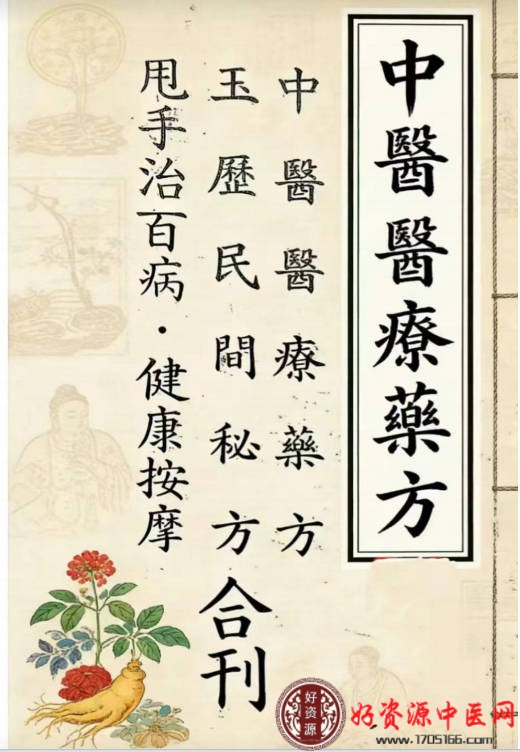 中醫醫療藥方
中醫醫療藥方
玉歷民間秘方合刊
甩手治百病·健康按摩
好资源
好资源中医网
www.1705166.com